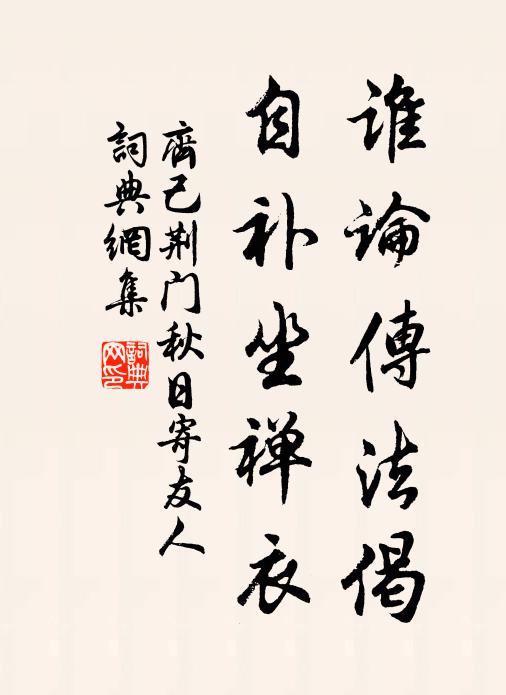 誰論傳法偈
自补坐禅衣
齊己荆门秋日寄友人
詞典網集
詞典網印